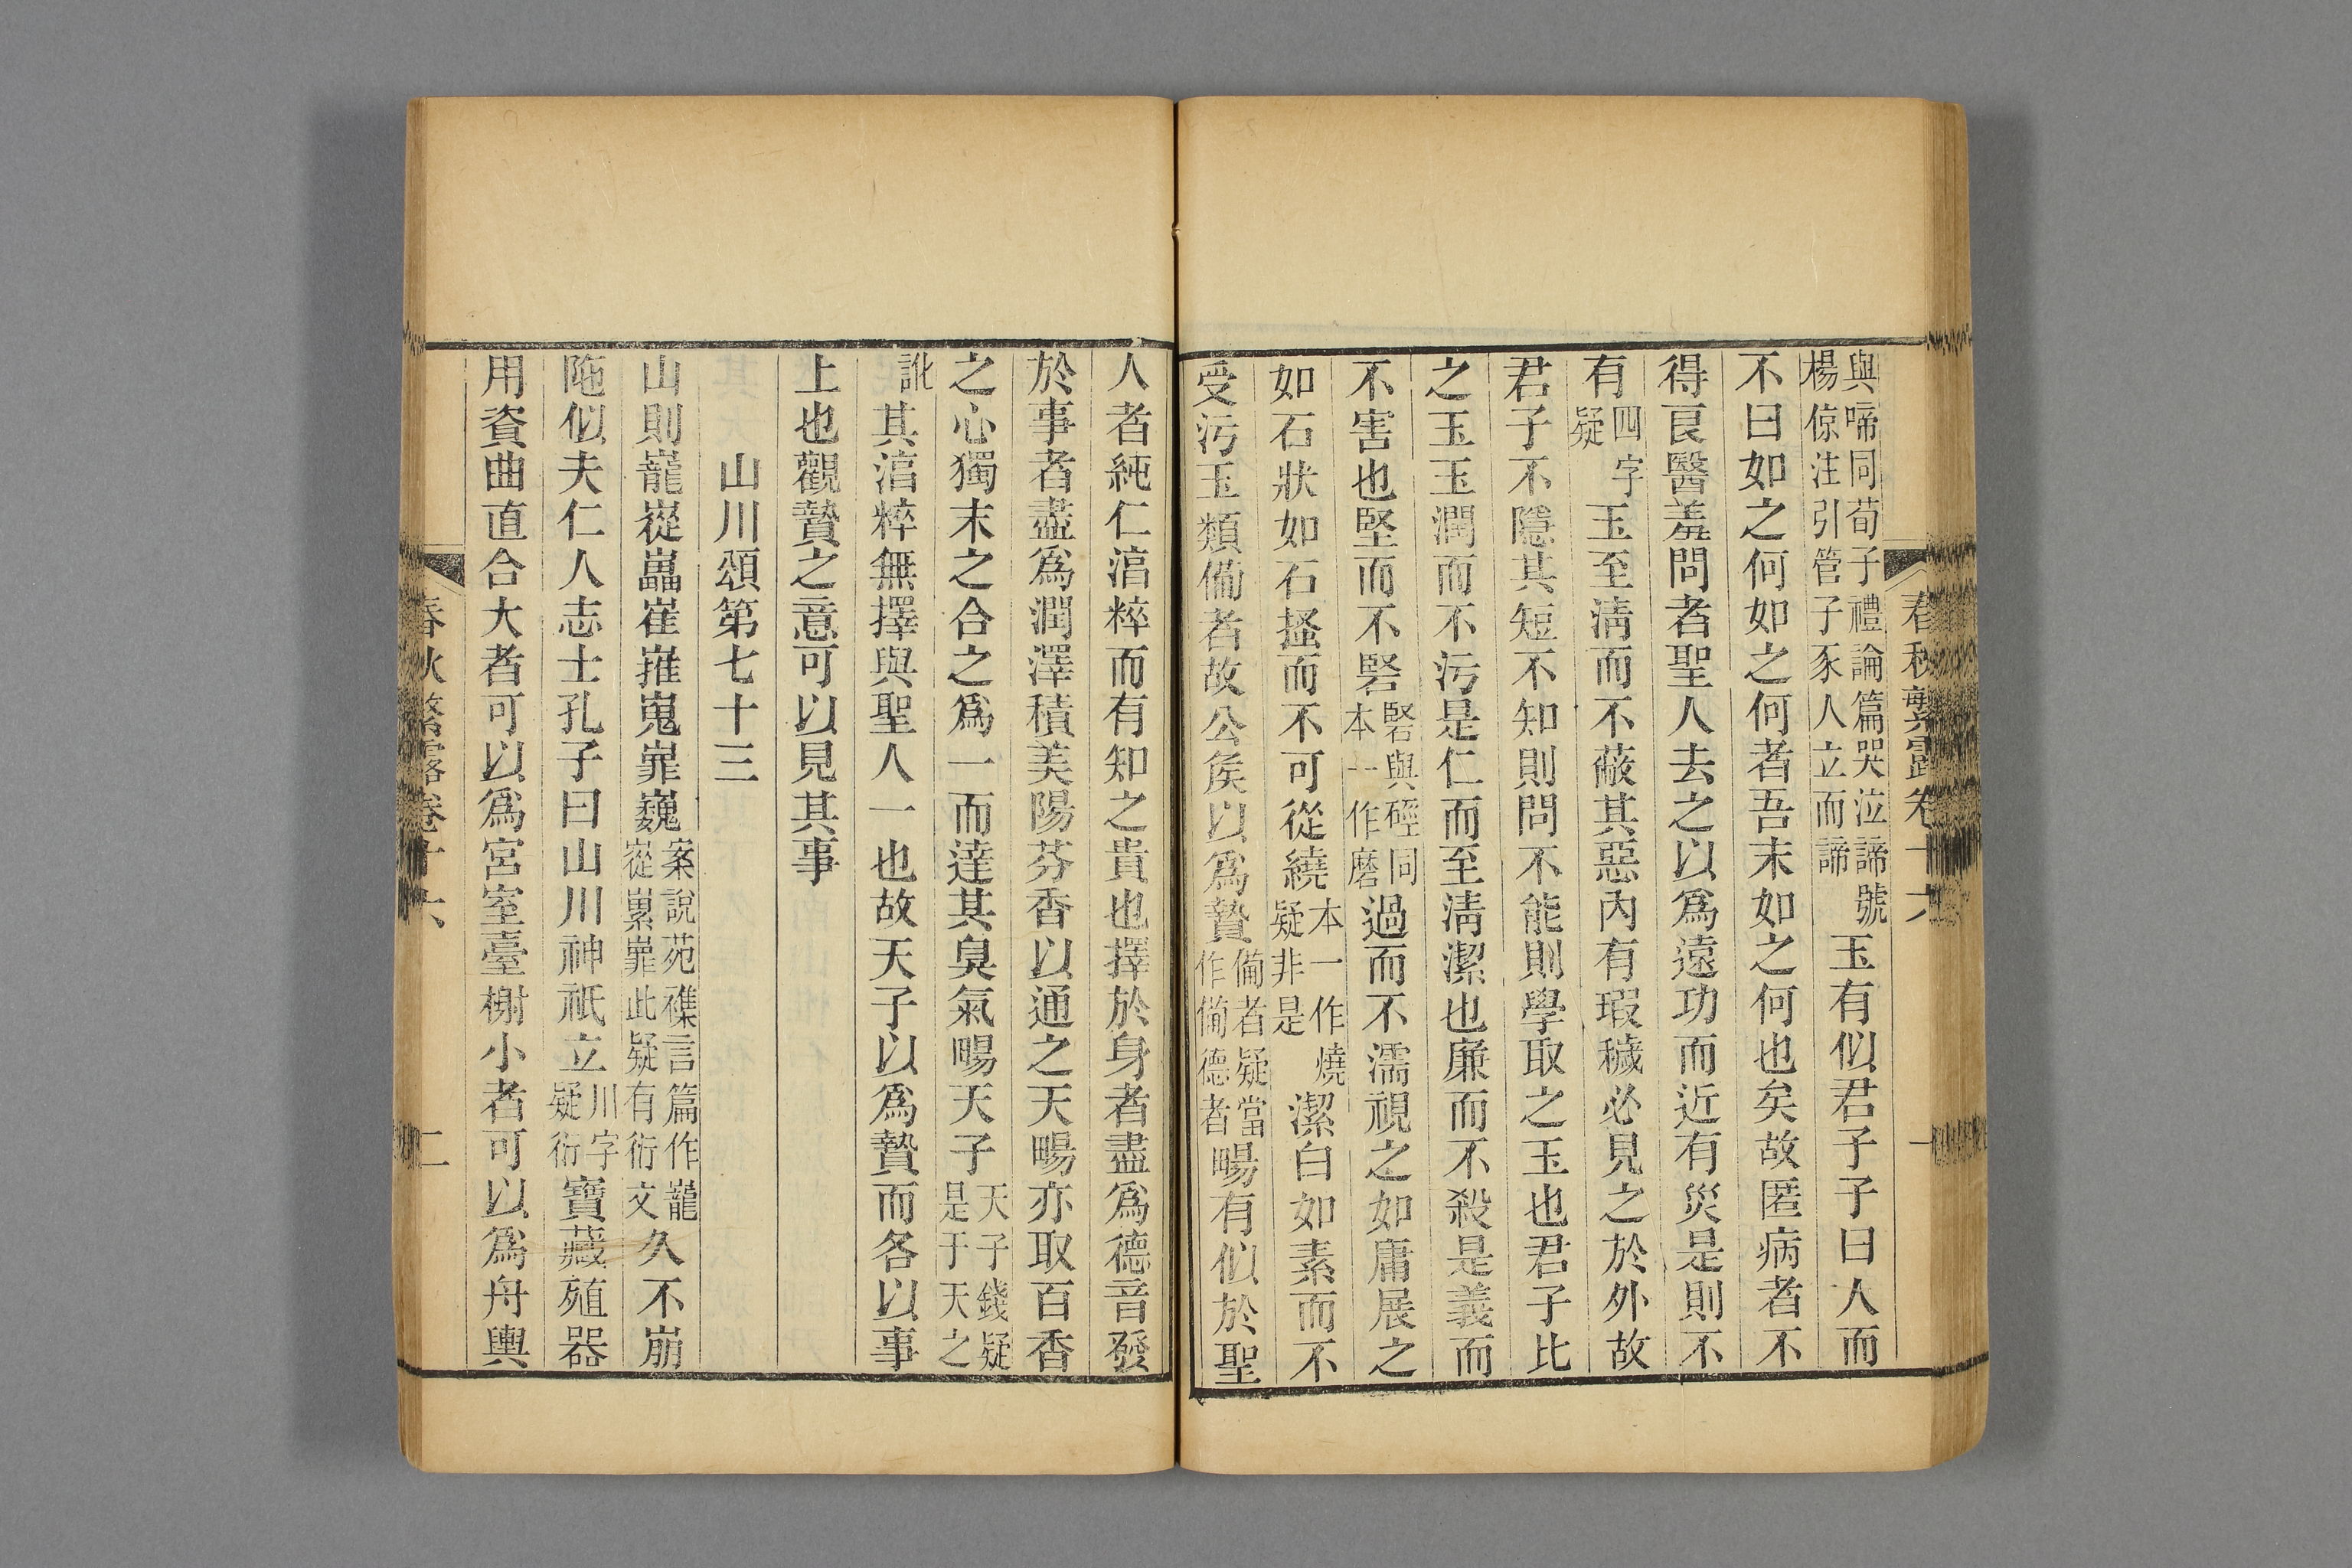 春秋繁露卷十六
一
與啼同荀子禮論篇哭泣諦號
楊倞注引管子豕人立而諦
玉有似君子子曰人而
不曰如之何如之何者吾末如之何也矣故匿病者不
得良醫羞問者聖人去之以爲遠功而近有災是則不
有
四字
疑
玉至淸而不蔽其惡內有瑕穢必見之於外故
君子不隱其短不知則問不能則學取之玉也君子比
之玉玉潤而不污是仁而至淸潔也廉而不殺是義而
不害也堅而不硻
硻與硜同
本一作磨
過而不濡視之如庸展之
如石狀如石搔而不可從繞
本一作燒
疑非是
潔白如素而不
受污玉類備者故公矦以爲贄
備者疑當
作備德者
暢有似於聖
人者純仁淳粹而有知之貴也擇於身者盡爲德音發
於事者盡爲潤澤積美陽芬香以通之天暢亦取百香
之心獨末之合之爲一而達其臭氣暢天子
天子錢疑
是于天之
訛
其淳粹無擇與聖人一也故天子以爲贄而各以事
上也觀贄之意可以見其事
山川頌第七十三
山則巃嵸㠥崔嶊嵬嶵巍
案說苑襍言篇作巃
嵸累嶵此疑有衍文
久不崩
陁似夫仁人志士孔子曰山川神祇立
川字
疑衍
寶藏殖器
用資曲直合大者可以爲宮室臺榭小者可以爲舟輿
春秋繁露卷十六
二